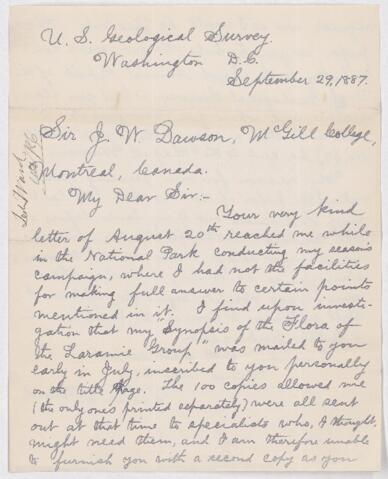 U. S. Geological Survey.
Washington D.C.
September 29, 1887.
Sir J. W. Dawson, McGill College,
Montreal, Canada.
My Dear Sir:-
Your very kind
letter of August 20th reached me while
in the National Park conducting my season's
campaign, where I had not the facilities
for making full answer to certain points
mentioned in it. I find upon investi-
gation that my "Synopsis of the Flora of
the Laramie Group" was mailed to you
early in July, inscribed to you personally
on the title page. The 100 copies allowed me
(the only ones printed separately) were all sent
out at that time to specialists who, I thought,
might need them, and I am therefore unable
to furnish you with a second copy as you
Ward